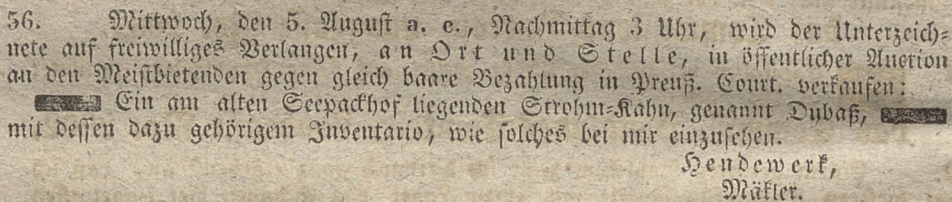 56. Mittwoch, den 5. August a. c., Nachmittag 3 Uhr, wird der Unterzeich-
nete auf freiwilliges Verlangen, an Ort und Stelle, in öffentlicher Auction
an den Meistbietenden gegen gleich baare Bezahlung in Preuß. Court. verkaufen:
Ein am alten Seepackhof liegenden Strohm-Kahn, genannt Dubaß,
mit dessen dazu gehörigem Inventario, wie solches bei mir einzusehen.
Hendewerk,
Mäkler.